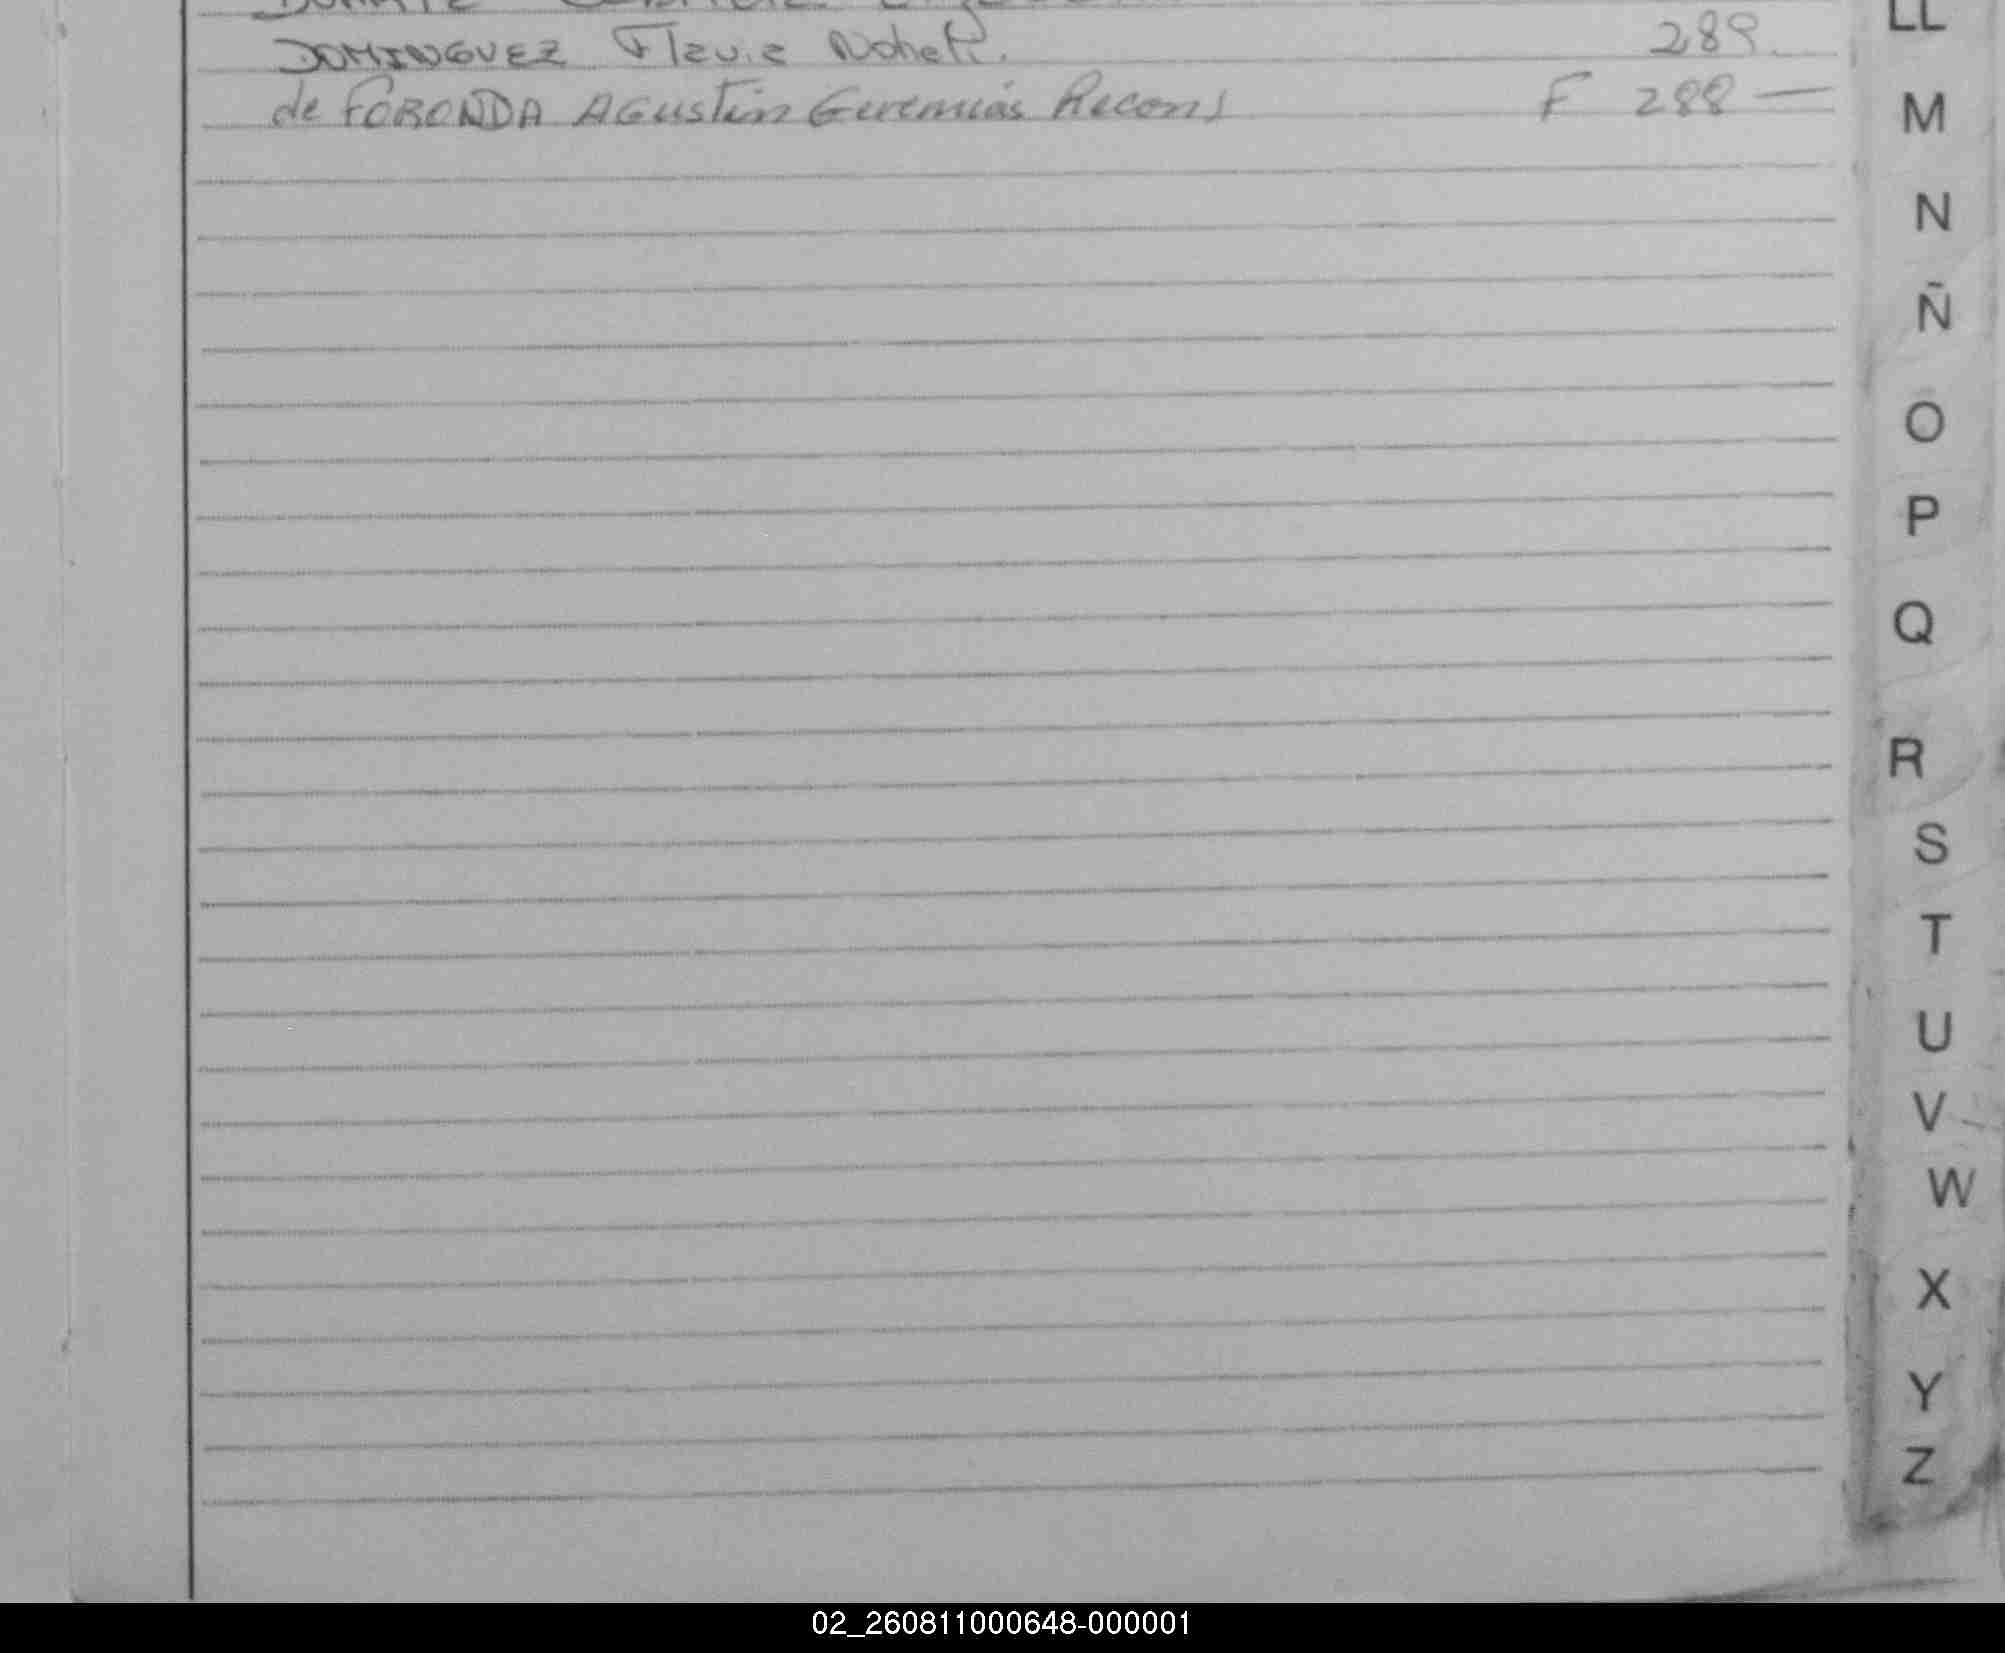 LL
DOMINGUEZ Flavia 289.
de FORONDA AGustín Geremías Recons F 288 —
M
N
Ñ
O
P
Q
R
S
T
U
V
W
X
Y
Z
02_260811000648-000001